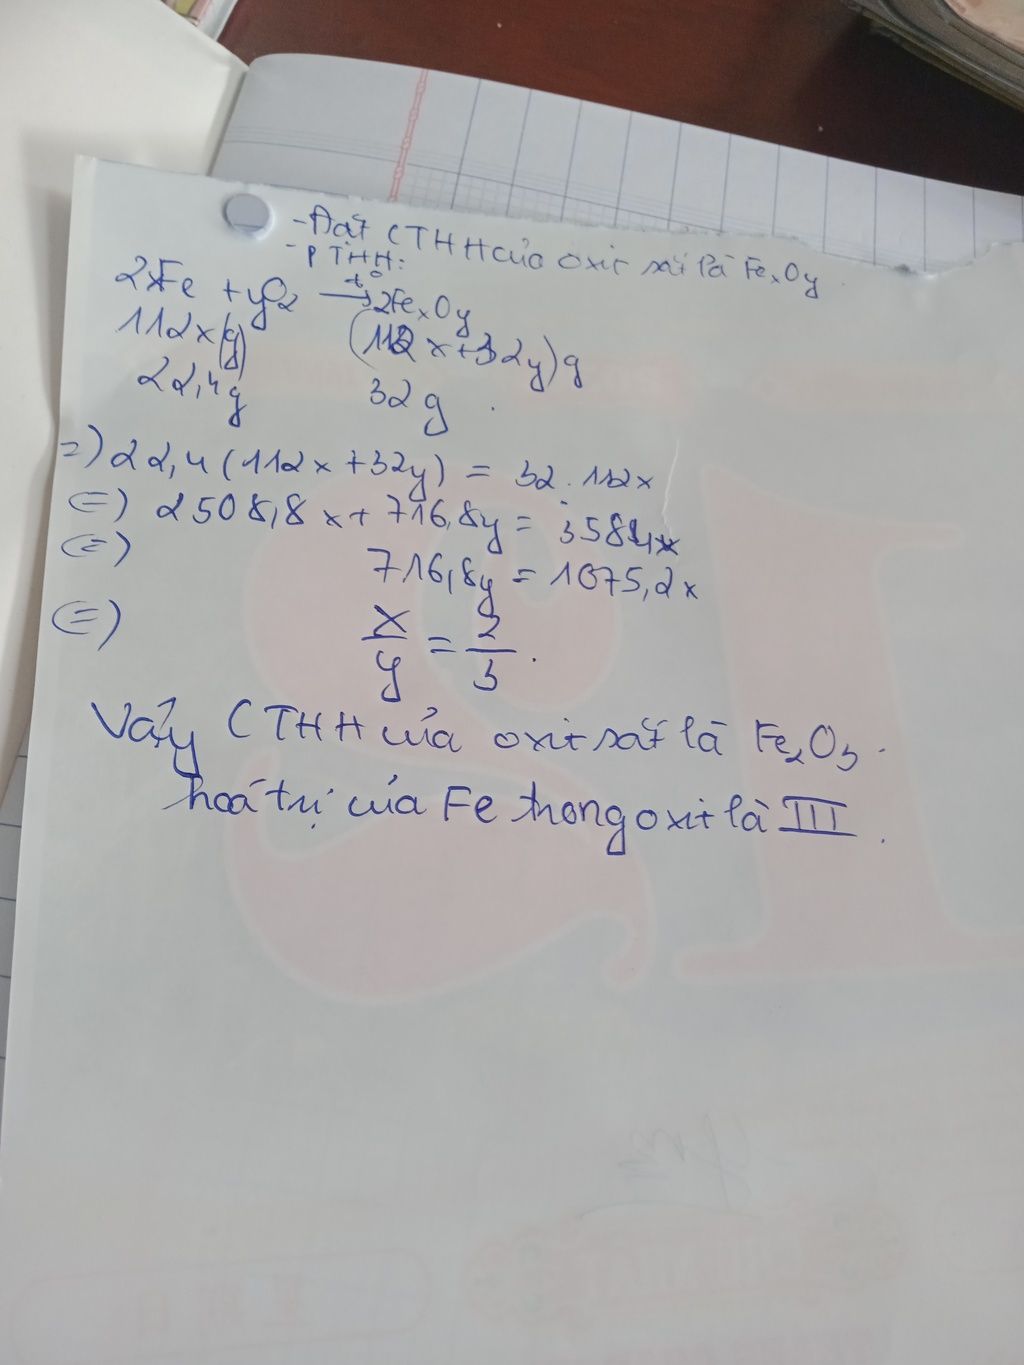 - Đặt CTHH của oxit sắt là FeₓOy
- PTHH:
2xFe + yO₂ →(t°) 2FeₓOy
112x(g) (112x+32y)g
22,4g 32g .
=) 22,4(112x+32y) = 32.112x
(=) 2508,8x+716,8y = 3584x
(=) 716,8y = 1075,2x
(=) x/y = 2/3.
Vậy CTHH của oxit sắt là Fe₂O₃.
hoá trị của Fe trong oxit là III.